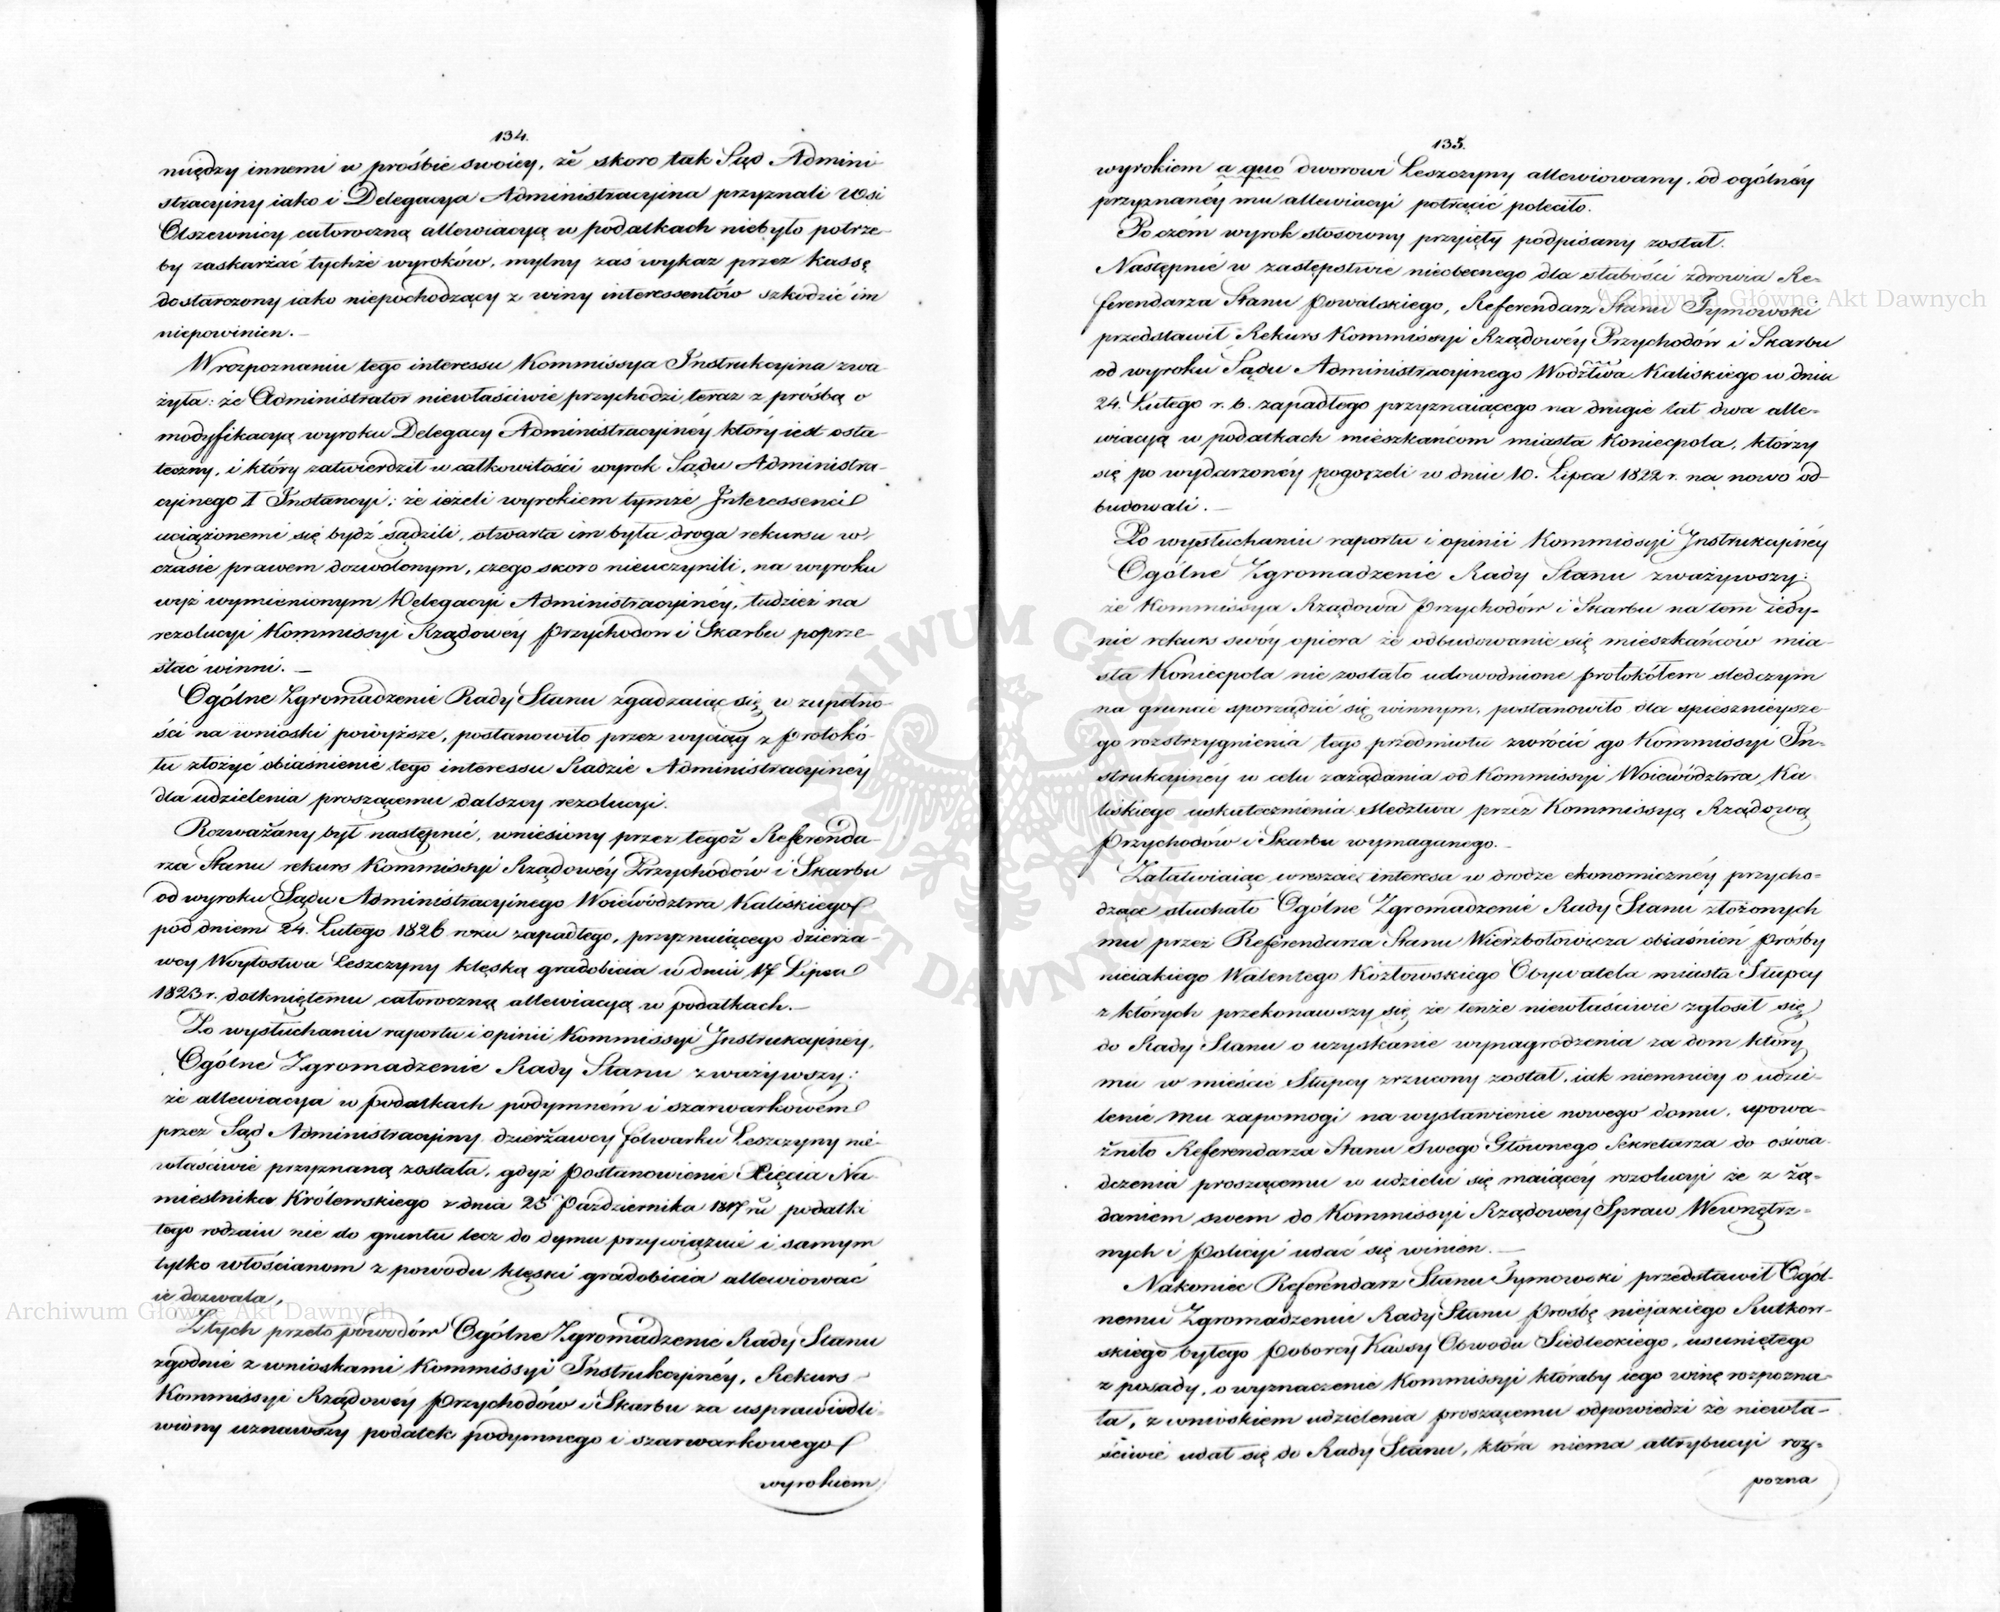 134.
między innemi w prośbie swoiey, że skoro tak Sąd Admini-
stracyiny iako i Delegacya Administracyina przyznali Wsi
Olszewnicy całoroczną allewiacyą w podatkach niebyło potrze-
by zaskarżać tychże wyroków, mylny zaś wykaz przez kassę
dostarczony iako niepochodzący z winy interessentów szkodzić im
niepowinien. —
W rozpoznaniu tego interessu Kommissya Instrukcyina zwa-
żyła: że Administrator niewłaściwie przychodzi teraz z prośbą o
modyfikacyą wyroku Delegacyi Administracyinéy który iest osta-
teczny, i który zatwierdził w całkowitości wyrok Sądu Administra-
cyinego I Instancyi; że ieżeli wyrokiem tymże Interessenci
uciążonemi się bydź sądzili, otwarta im była droga rekursu w
czasie prawem dozwolonym, czego skoro nieuczynili, na wyroku
wyż wymienionym Delegacyi Administracyinéy, tudzież na
rezolucyi Kommissyi Rządowéy Przychodow i Skarbu poprze-
stać winni. —
Ogólne Zgromadzenie Rady Stanu zgadzaiąc się w zupełno-
ści na wnioski powyższe, postanowiło przez wyciąg z protokó-
łu złożyć obiaśnienie tego interessu Radzie Administracyinéy
dla udzielenia proszącemu dalszey rezolucyi.
Rozważany był następnié, wniesiony przez tegoż Referenda-
rza Stanu rekurs Kommissyi Rządowéy Przychodów i Skarbu
od wyroku Sądu Administracyinego Woiewództwa Kaliskiego
pod dniem 24. Lutego 1826 roku zapadłego, przyznaiącego dzierża-
wcy Woytostwa Leszczyny klęską gradobicia w dniu 17 Lipca
1823 r. dotkniętemu całoroczną allewiacyą w podatkach. —
Po wysłuchaniu raportu i opinii Kommissyi Instrukcyinéy,
Ogólne Zgromadzenie Rady Stanu zważywszy:
że allewiacya w podatkach podymném i szarwarkowém
przez Sąd Administracyiny dzierżawcy folwarku Leszczyny nie-
właściwie przyznaną została, gdyż Postanowienie Xięcia Na-
miestnika Królewskiego z dnia 25 Października 1817 ru podatki
tego rodzaiu nie do gruntu lecz do dymu przywiązuie i samym
tylko włościanom z powodu klęski gradobicia allewiować
ie dozwala,
Z tych przeto powodów Ogólne Zgromadzenie Rady Stanu
zgodnie z wnioskami Kommissyi Instrukcyinéy, Rekurs
Kommissyi Rządowéy Przychodów i Skarbu za usprawiedli-
wiony uznawszy podatek podymnego i szarwarkowego
wyrokiem
135.
wyrokiem a quo dworowi Leszczyny allewiowany, od ogólnéy
przyznanéy mu allewiacyi potrącić poleciło.
Poczém wyrok stosowny przyięty podpisany został.
Następnié w zastępstwie nieobecnego dla słabości zdrowia Re-
ferendarza Stanu Powalskiego, Referendarz Stanu Tymowski
przedstawił Rekurs Kommissyi Rządowéy Przychodów i Skarbu
od wyroku Sądu Administracyinego Wodztwa Kaliskiego w dniu
24. Lutego r. b. zapadłego przyznaiącego na drugie lat dwa alle-
wiacyą w podatkach mieszkańcom miasta Koniecpola, którzy
się po wydarzonéy pogorzeli w dniu 10. Lipca 1822 r. na nowo od-
budowali. —
Po wysłuchaniu raportu i opinii Kommissyi Instrukcyinéy
Ogólne Zgromadzenie Rady Stanu zważywszy:
że Kommissya Rządowa Przychodów i Skarbu na tém iedy-
nie rekurs swóy opiera że odbudowanie się mieszkańców mia-
sta Koniecpola nie zostało udowodnione protokółem śledczym
na gruncie sporządzić się winnym, postanowiło dla spiesznieysze-
go rozstrzygnienia tego przedmiotu zwrócić go Kommissyi In-
strukcyinéy w celu zażądania od Kommissyi Woiewództwa Ka-
liskiego uskutecznienia śledztwa przez Kommissyą Rządową
Przychodów i Skarbu wymaganego. —
Załatwiaiąc wreszcie interesa w drodze ekonomicznéy przycho-
dzące słuchało Ogólne Zgromadzenie Rady Stanu złożonych
mu przez Referendarza Stanu Wierzbołowicza obiaśnień prośby
nieiakiego Walentego Kozłowskiego Obywatela miasta Słupcy
z których przekonawszy się że tenże niewłaściwie zgłosił się
do Rady Stanu o uzyskanie wynagrodzenia za dom który
mu w mieście Słupcy zrzucony został, iak niemniéy o udzie-
lenie mu zapomogi na wystawienie nowego domu, upowa-
żniło Referendarza Stanu swego Głównego Sekretarza do oświa-
dczenia proszącemu w udzielić się maiącéy rezolucyi że z żą-
daniem swem do Kommissyi Rządowey Spraw Wewnętrz-
nych i Policyi udać się winien. —
Nakoniec Referendarz Stanu Tymowski przedstawił Ogól-
nemu Zgromadzeniu Rady Stanu prośbę niejakiego Rutkow-
skiego byłego Poborcy Kassy Obwodu Siedleckiego, usuniętego
z posady, o wyznaczenie Kommissyi któraby iego winę rozpozna-
ła, z wnioskiem udzielenia proszącemu odpowiedzi że niewła-
ściwie udał się do Rady Stanu, która niema attrybucyi roz-
pozna
Archiwum Główne Akt Dawnych
Archiwum Główne Akt Dawnych
ARCHIWUM GŁÓWNE AKT DAWNYCH